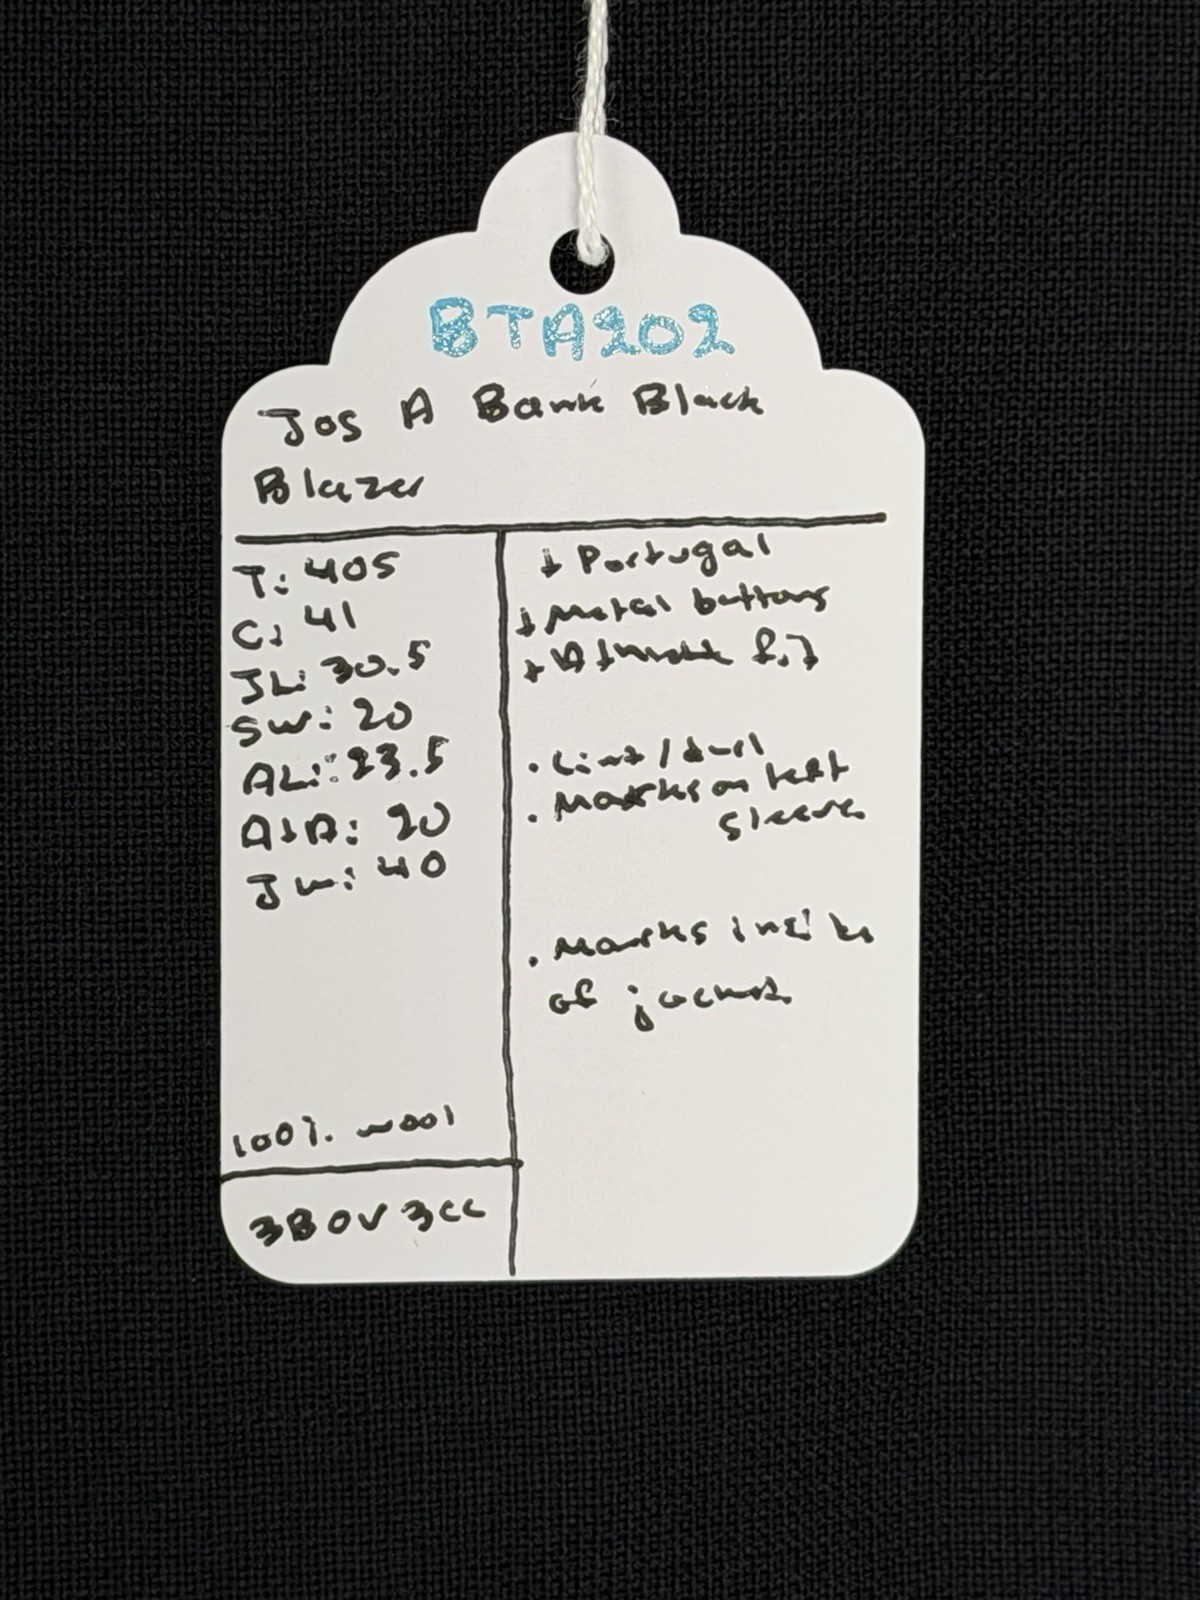 BTA202
Jos A Bank Black
Blazer
T: 40S
C: 41
JL: 30.5
SW: 20
AL: 23.5
A2A: 20
JW: 40
100% wool
3B0V3CC
+ Portugal
+ Metal buttons
+ fit
. Lint/dust
. Marks on left
sleeve
. Marks inside
of jacket